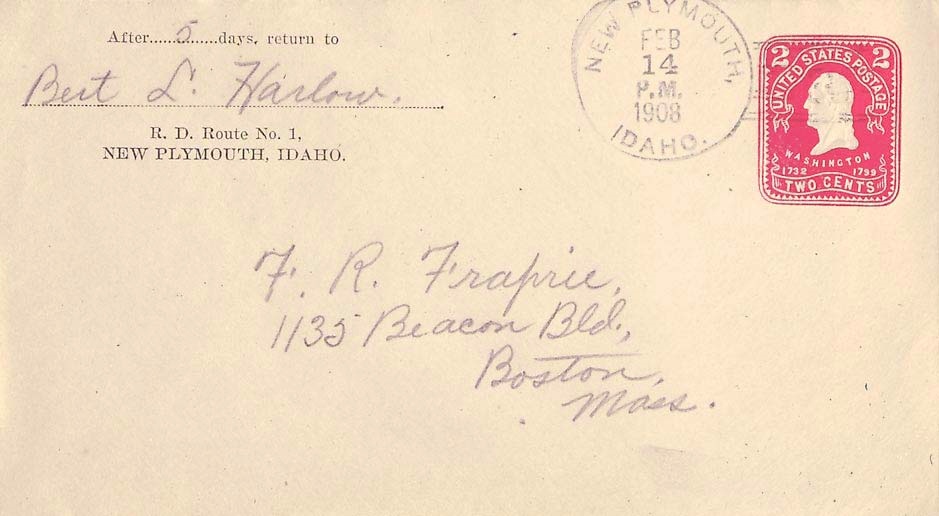 After......5......days, return to
Bert L. Harlow.
R. D. Route No. 1,
NEW PLYMOUTH, IDAHO.
NEW PLYMOUTH,
FEB
14
P.M.
1908
IDAHO.
2 2
UNITED STATES POSTAGE
WASHINGTON
1732 1799
TWO CENTS
F. R. Fraprie,
1135 Beacon Bld.,
Boston,
Mass.